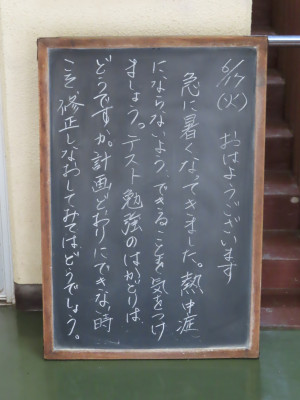 6/17(火) おはようございます
急に暑くなってきました。熱中症
にならないよう、できることを気をつけ
ましょう。テスト勉強のはかどりは
どうですか。計画どおりにできない時
こそ修正しなおしてみてはどうでしょう。